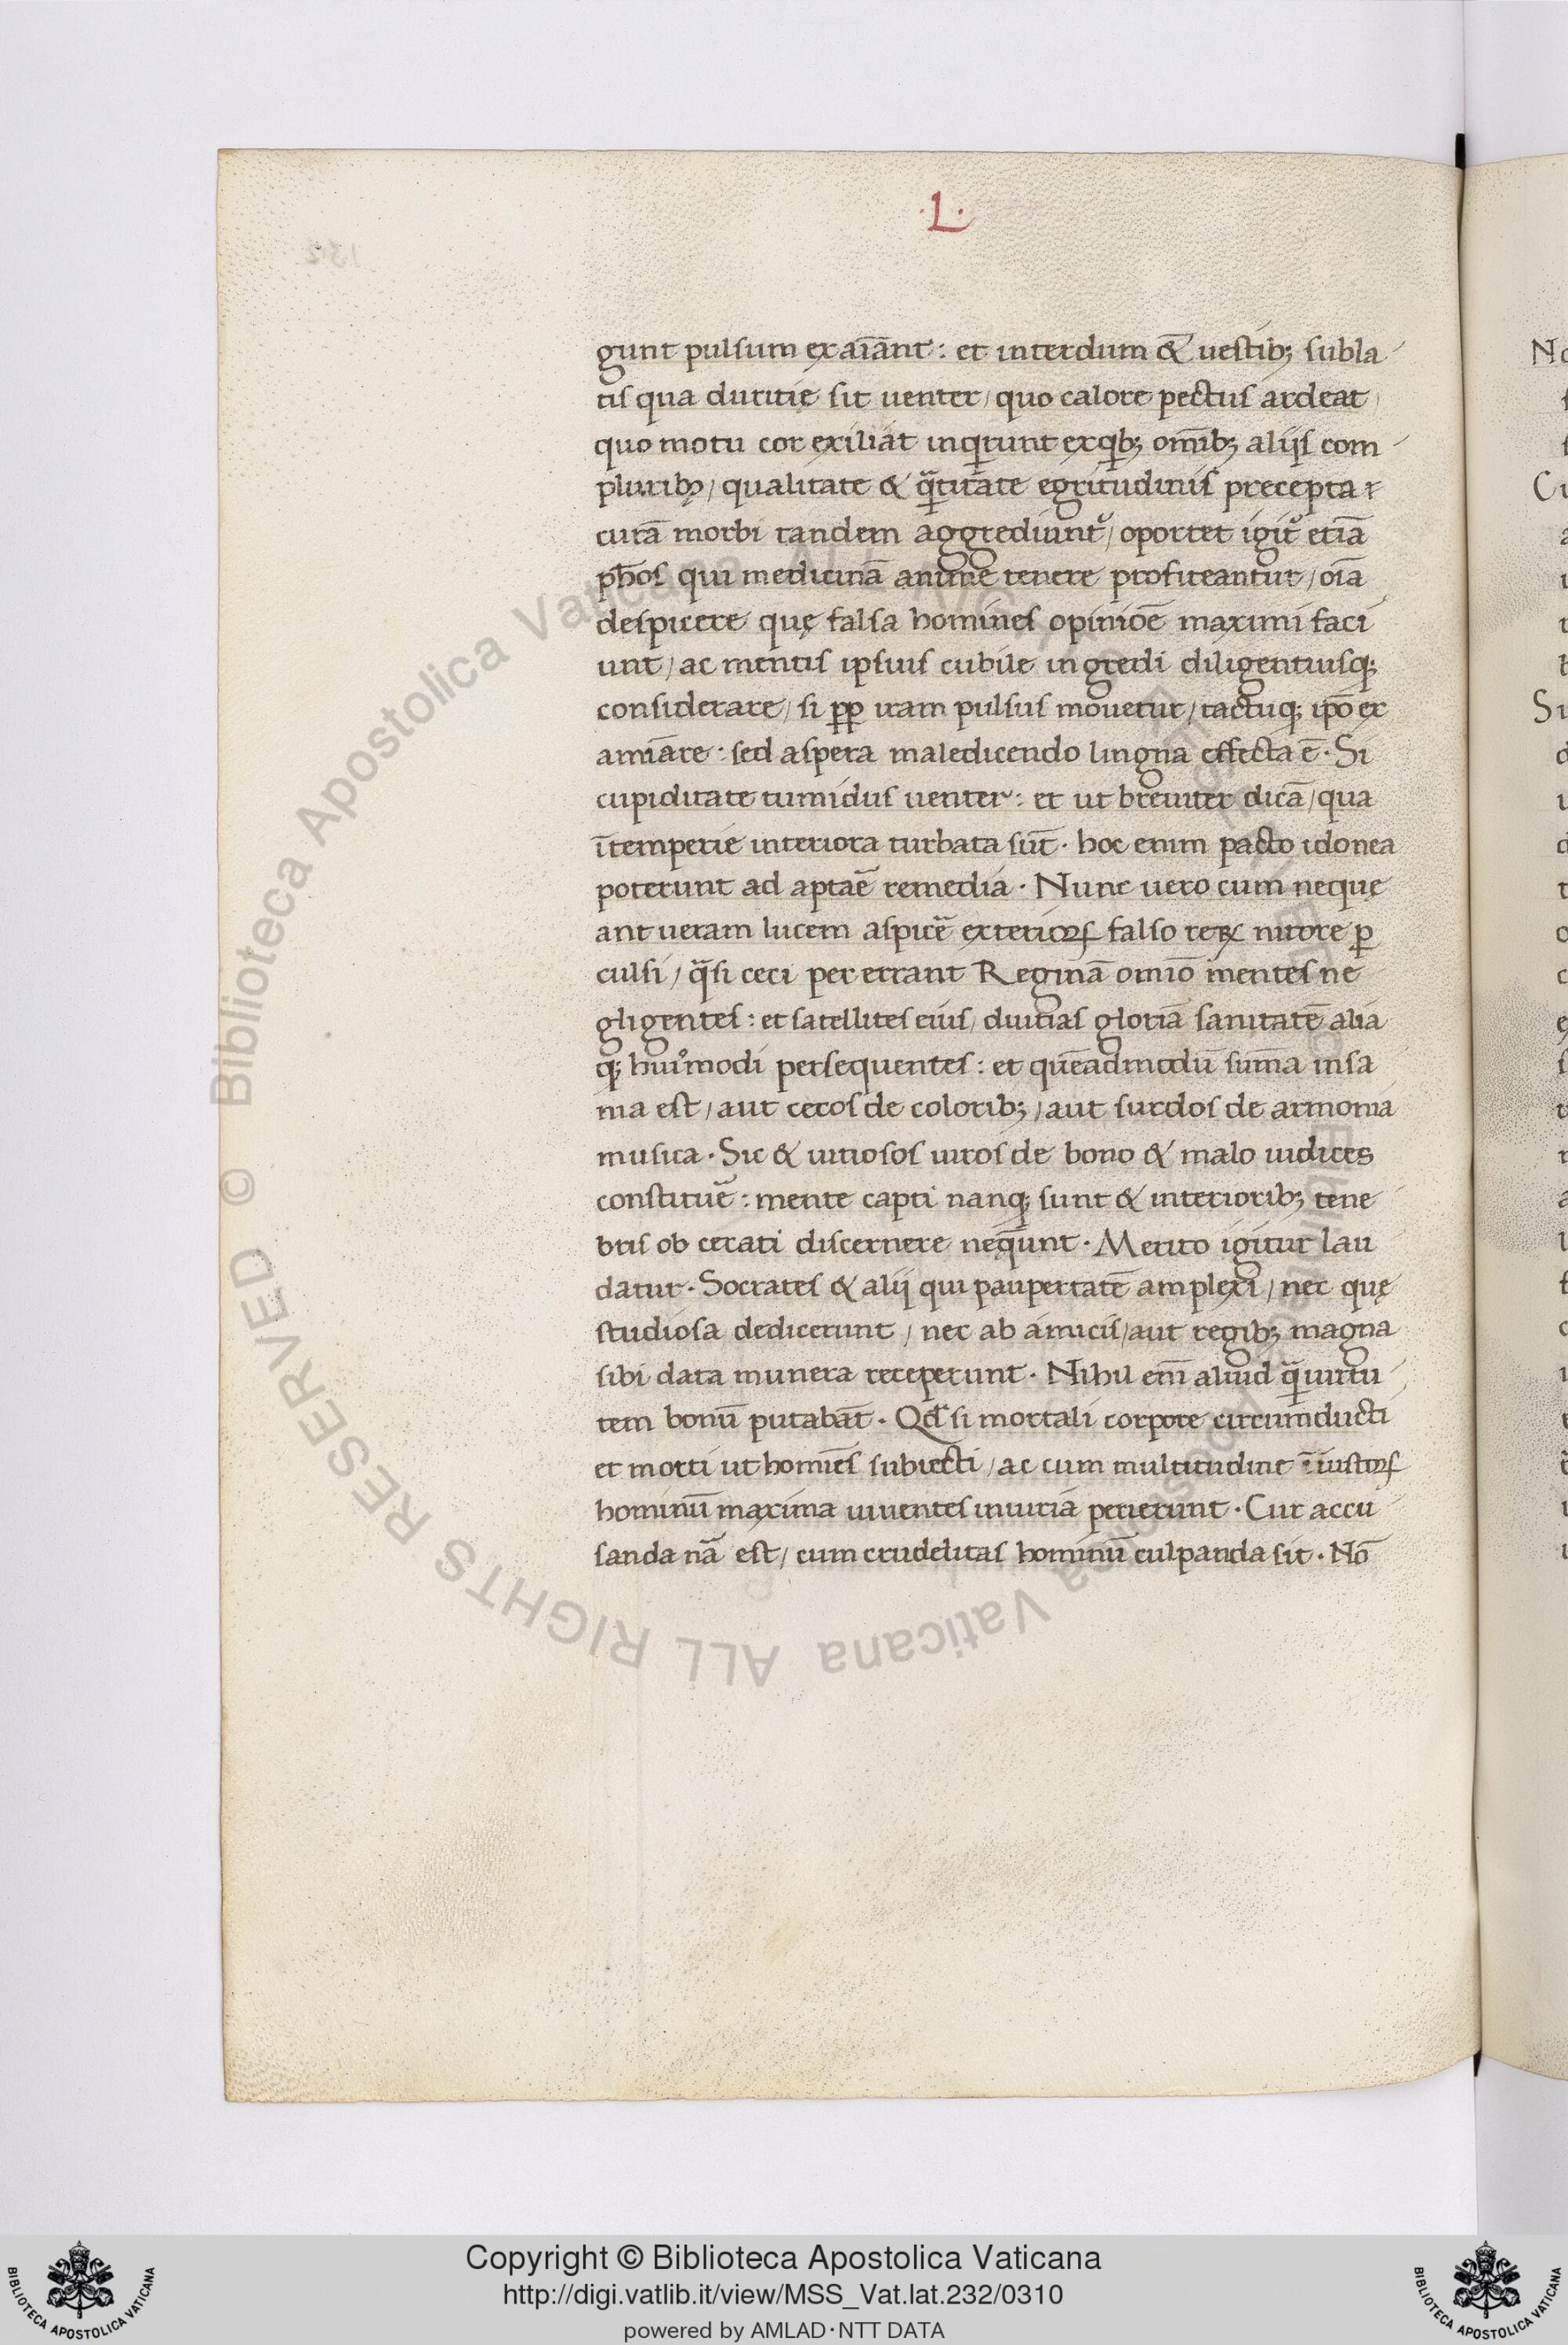 ·L·
gunt pulsum exaīānt: et interdum &̄ uestib; subla
tis qua duritię sit uenter/ quo calore pectus ardeat
quo motu cor exiliat inqrunt exqb; om̄ib; aliis com
pluribꝫ/ qualitate & q̄titate egritudinis precepta
curā morbi tandem aggrediunt᷑/ oportet igit᷑ etiā
ph̄os qui medicinā anime tenere profiteantur/ oīa
despicere quę falsa homines opinioē maximi faci
unt/ ac mentis ipsius cubile ingredi diligentiusq;
considerare/ si ꝓp iram pulsus mouetur/ tactuq; ip̄o ex
amiāre: sed aspera maledicendo lingna effecta ē· Si
cupiditate tumidus uenter: et ut breuiter dicā/ qua
ītemperie interiora turbata sūt· hoc enim pacto idonea
poterunt ad aptaē remedia· Nunc uero cum neque
ant ueram lucem aspicē exterioꝝ falso reꝝ nitore ꝑ
culsi/ q̄si ceci per errant Reginā omīo mentes ne
gligentes: et satellites eius/ diuitias gloriā sanitatē alia
q; hui᷒modi persequentes: et quēadmodū sum̄a insa
nia est/ aut cecos de colorib;/ aut surdos de armonia
musica· Sic & uitiosos uiros de bono & malo iudices
constituē: mente capti nanq; sunt & interiorib; tene
bris ob cecati discernere neq̄unt· Merito igitur lau
datur· Socrates & alij qui paupertatē amplexi/ nec quę
studiosa dedicerunt/ nec ab amicis/ aut regib; magna
sibi data munera receperunt· Nihil em̄ aliud q̄ uirtu
tem bonū putabāt· Qd̄ si mortali corpore circumducti
et morti ut homiēs subiecti/ ac cum multitudine īiustoꝝ
hominū maxima uiuentes iniuriā petierunt· Cur accu
sanda nā est/ cum crudelitas hominū culpanda sit· Nō
Copyright © Biblioteca Apostolica Vaticana
http://digi.vatlib.it/view/MSS_Vat.lat.232/0310
powered by AMLAD·NTT DATA